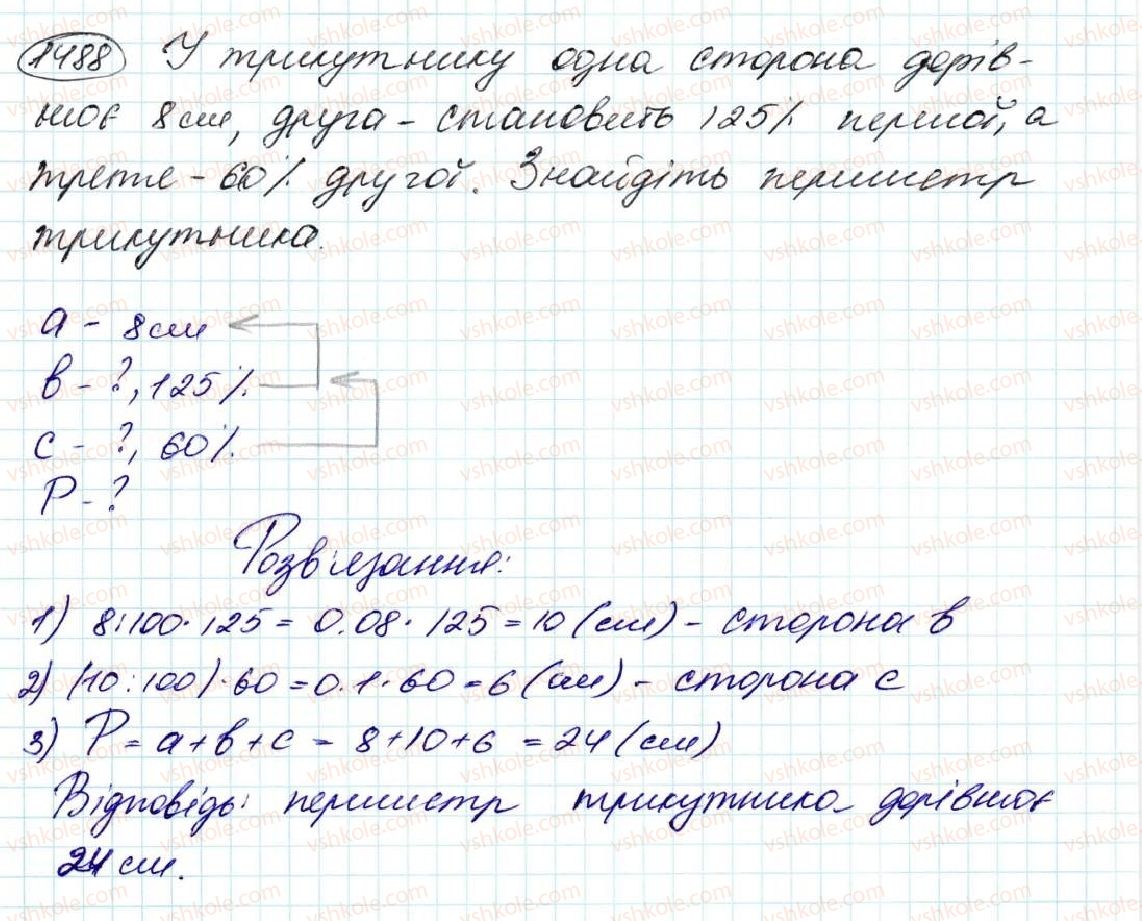 1488 У трикутнику одна сторона дорів-
нює 8 см, друга – становить 125% першої, а
третя – 60% другої. Знайдіть периметр
трикутника.
a – 8 см
b – ?, 125%
c – ?, 60%
P – ?
Розв'язання:
1) 8:100·125 = 0.08·125 = 10 (см) – сторона b
2) (10:100)·60 = 0.1·60 = 6 (см) – сторона c
3) P = a+b+c = 8+10+6 = 24 (см)
Відповідь: периметр трикутника дорівнює
24 см.